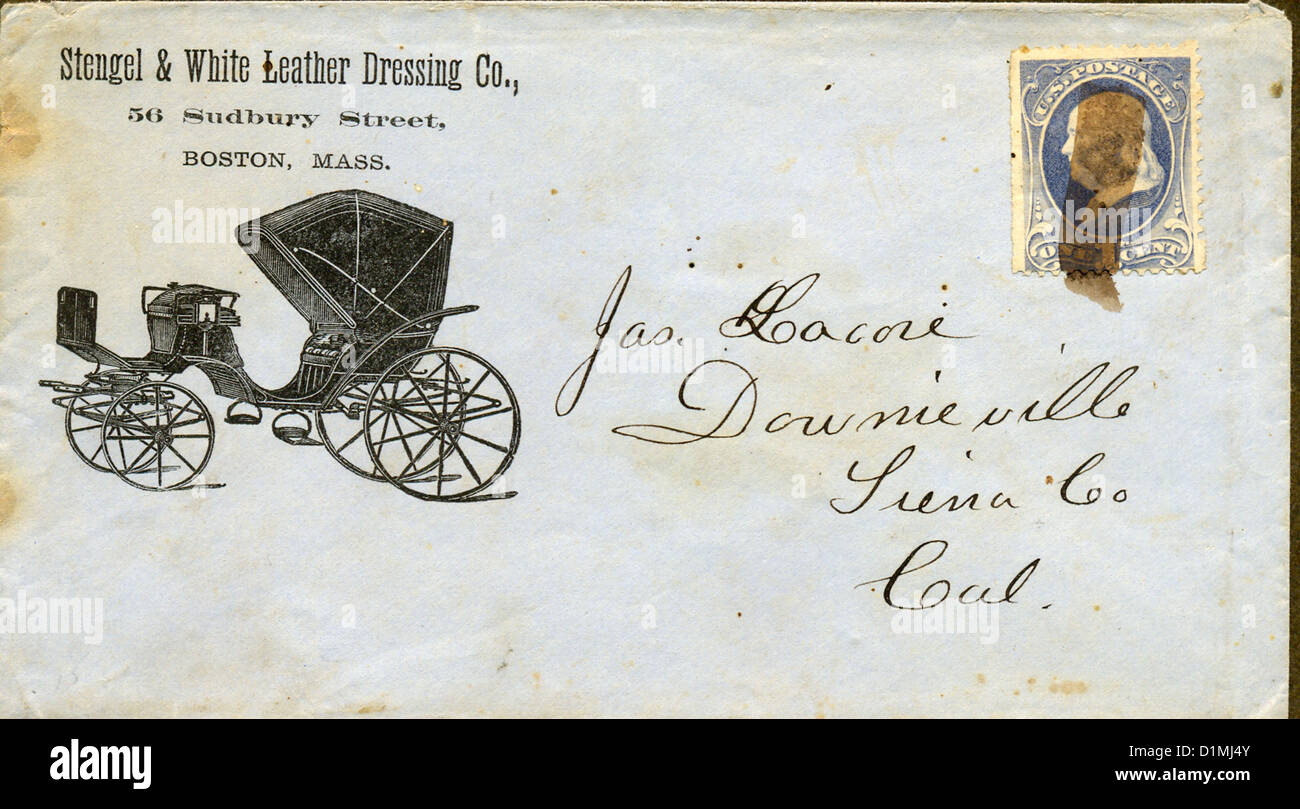 Stengel & White Leather Dressing Co.,
56 Sudbury Street,
BOSTON, MASS.
U.S. POSTAGE
ONE CENT
Jas. Lacore
Downieville
Sierra Co
Cal.
alamy
Image ID: D1MJ4Y
www.alamy.com